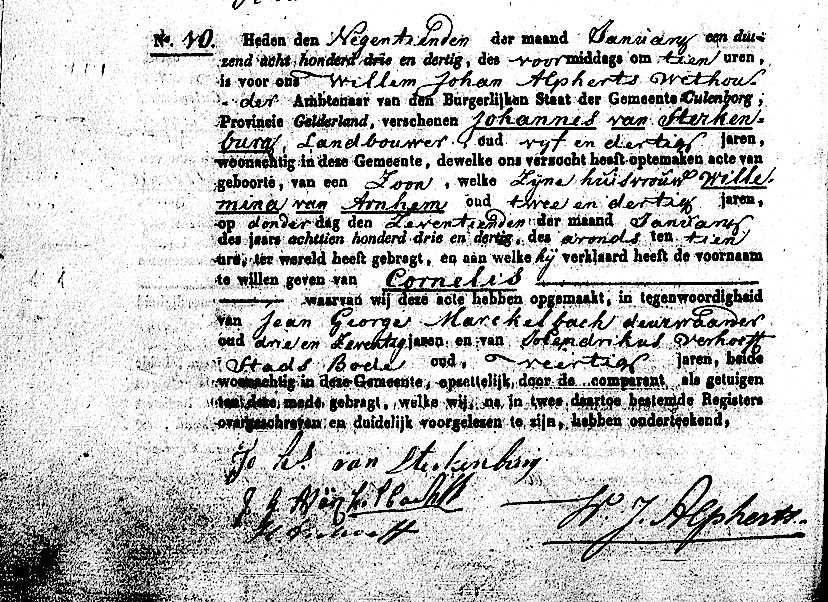 No. 10. Heden den Negentienden der maand January een dui-
zend acht honderd drie en dertig, des voormiddags om tien uren,
is voor ons Willem Johan Alpherts Wethou-
der Ambtenaar van den Burgerlijken Staat der Gemeente Culenborg,
Provincie Gelderland, verschenen Johannes van Sterken-
burg, Landbouwer, oud vyf en dertig jaren,
woonachtig in deze Gemeente, dewelke ons verzocht heeft optemaken acte van
geboorte, van een Zoon, welke Zyne huisvrouw Wille-
mina van Arnhem oud twee en dertig jaren,
op donderdag den Zeventienden der maand January
des jaars achttien honderd drie en dertig, des avonds ten tien
ure, ter wereld heeft gebragt, en aan welke hy verklaard heeft de voornaam
te willen geven van Cornelis
waarvan wij deze acte hebben opgemaakt, in tegenwoordigheid
van Jean George Marckelbach deurwaarder
oud drie en Zeventig jaren en van Verhoeff
Stads Bode oud, veertig jaren, beide
woonachtig in deze Gemeente, opzettelijk door de comparant als getuigen
tot deze mede gebragt, welke wij, na in twee daartoe bestemde Registers
overgeschreven en duidelijk voorgelezen te zijn, hebben onderteekend,
Johs. van Sterkenburg
J G Marckelbach
W. J. Alpherts.
Verhoeff